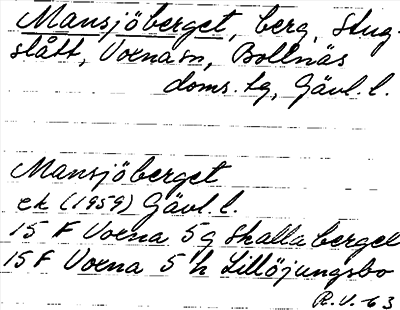 Mansjöberget, berg, Stug-
slått, Voxna sn, Bollnäs
doms. tg, Gävl. l.
Mansjöberget
ek (1959) Gävl. l.
15 F Voxna 5g Skallaberget
15 F Voxna 5 h Lillöjungsbo
R.V. -63